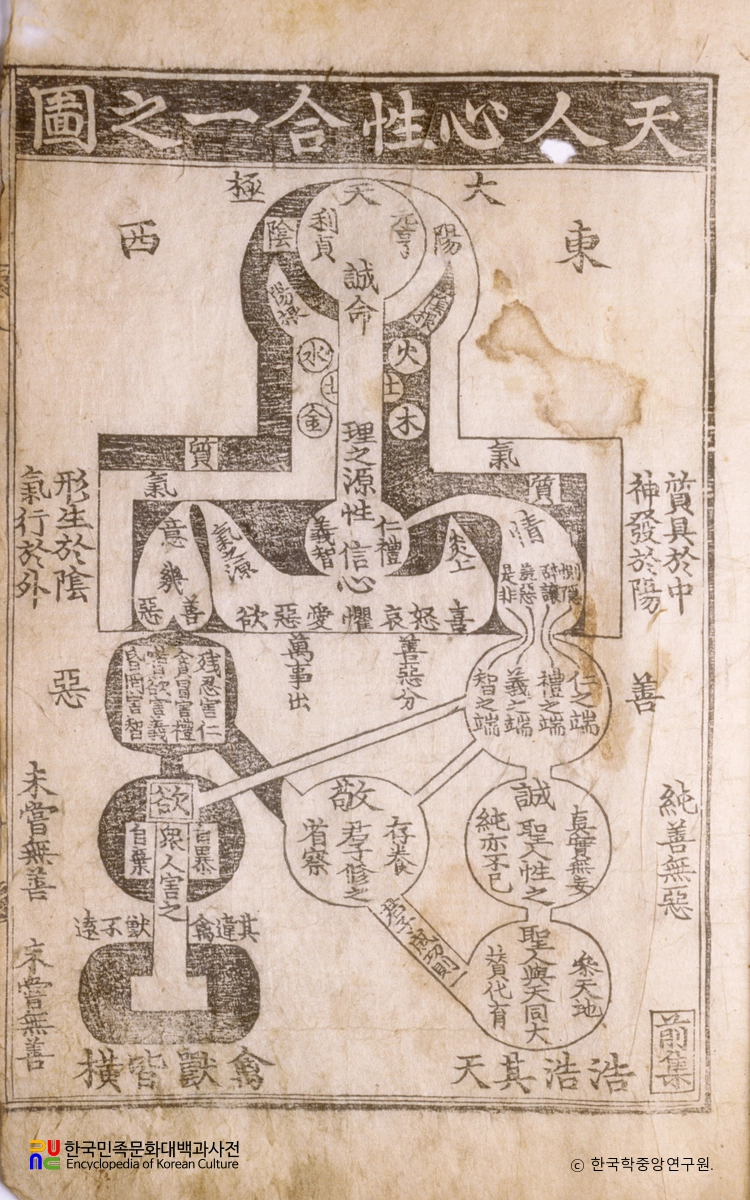 天人心性合一之圖
大極
東
西
天
元亨
利貞
誠
命
陽
陰
陽根
火
水
土
土
木
金
理之源
性
仁禮
義智
信
心
氣
質
質
氣
質具於中
神發於陽
形生於陰
氣行於外
情
惻隱
辭讓
羞惡
是非
炎上
氣之源
意
幾
善
惡
喜怒哀懼愛惡欲
善惡分
萬事出
善
惡
仁之端
禮之端
義之端
智之端
殘忍害仁
貪冒害禮
嗜欲害義
昏罔害智
純善無惡
未嘗無善
誠
真實無妄
聖人性之
純亦不已
敬
存養
君子修之
省察
欲
自暴
衆人害之
自棄
其違禽
獸不遠
聖人與天同大
參天地
贊化育
未嘗無善
浩浩其天
禽獸皆橫
前集
한국민족문화대백과사전
Encyclopedia of Korean Culture
© 한국학중앙연구원.